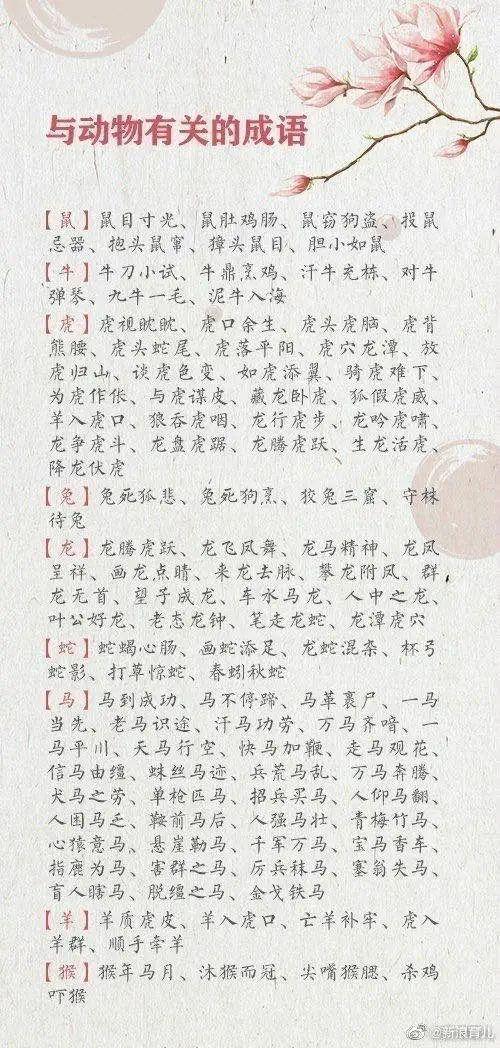 与动物有关的成语
【鼠】鼠目寸光、鼠肚鸡肠、鼠窃狗盗、投鼠
忌器、抱头鼠窜、獐头鼠目、胆小如鼠
【牛】牛刀小试、牛鼎烹鸡、汗牛充栋、对牛
弹琴、九牛一毛、泥牛入海
【虎】虎视眈眈、虎口余生、虎头虎脑、虎背
熊腰、虎头蛇尾、虎落平阳、虎穴龙潭、放
虎归山、谈虎色变、如虎添翼、骑虎难下、
为虎作伥、与虎谋皮、藏龙卧虎、狐假虎威、
羊入虎口、狼吞虎咽、龙行虎步、龙吟虎啸、
龙争虎斗、龙盘虎踞、龙腾虎跃、生龙活虎、
降龙伏虎
【兔】兔死狐悲、兔死狗烹、狡兔三窟、守株
待兔
【龙】龙腾虎跃、龙飞凤舞、龙马精神、龙凤
呈祥、画龙点睛、来龙去脉、攀龙附凤、群
龙无首、望子成龙、车水马龙、人中之龙、
叶公好龙、老态龙钟、笔走龙蛇、龙潭虎穴
【蛇】蛇蝎心肠、画蛇添足、龙蛇混杂、杯弓
蛇影、打草惊蛇、春蚓秋蛇
【马】马到成功、马不停蹄、马革裹尸、一马
当先、老马识途、汗马功劳、万马齐喑、一
马平川、天马行空、快马加鞭、走马观花、
信马由缰、蛛丝马迹、兵荒马乱、万马奔腾、
犬马之劳、单枪匹马、招兵买马、人仰马翻、
人困马乏、鞍前马后、人强马壮、青梅竹马、
心猿意马、悬崖勒马、千军万马、宝马香车、
指鹿为马、害群之马、厉兵秣马、塞翁失马、
盲人瞎马、脱缰之马、金戈铁马
【羊】羊质虎皮、羊入虎口、亡羊补牢、虎入
羊群、顺手牵羊
【猴】猴年马月、沐猴而冠、尖嘴猴腮、杀鸡
吓猴
@新浪育儿